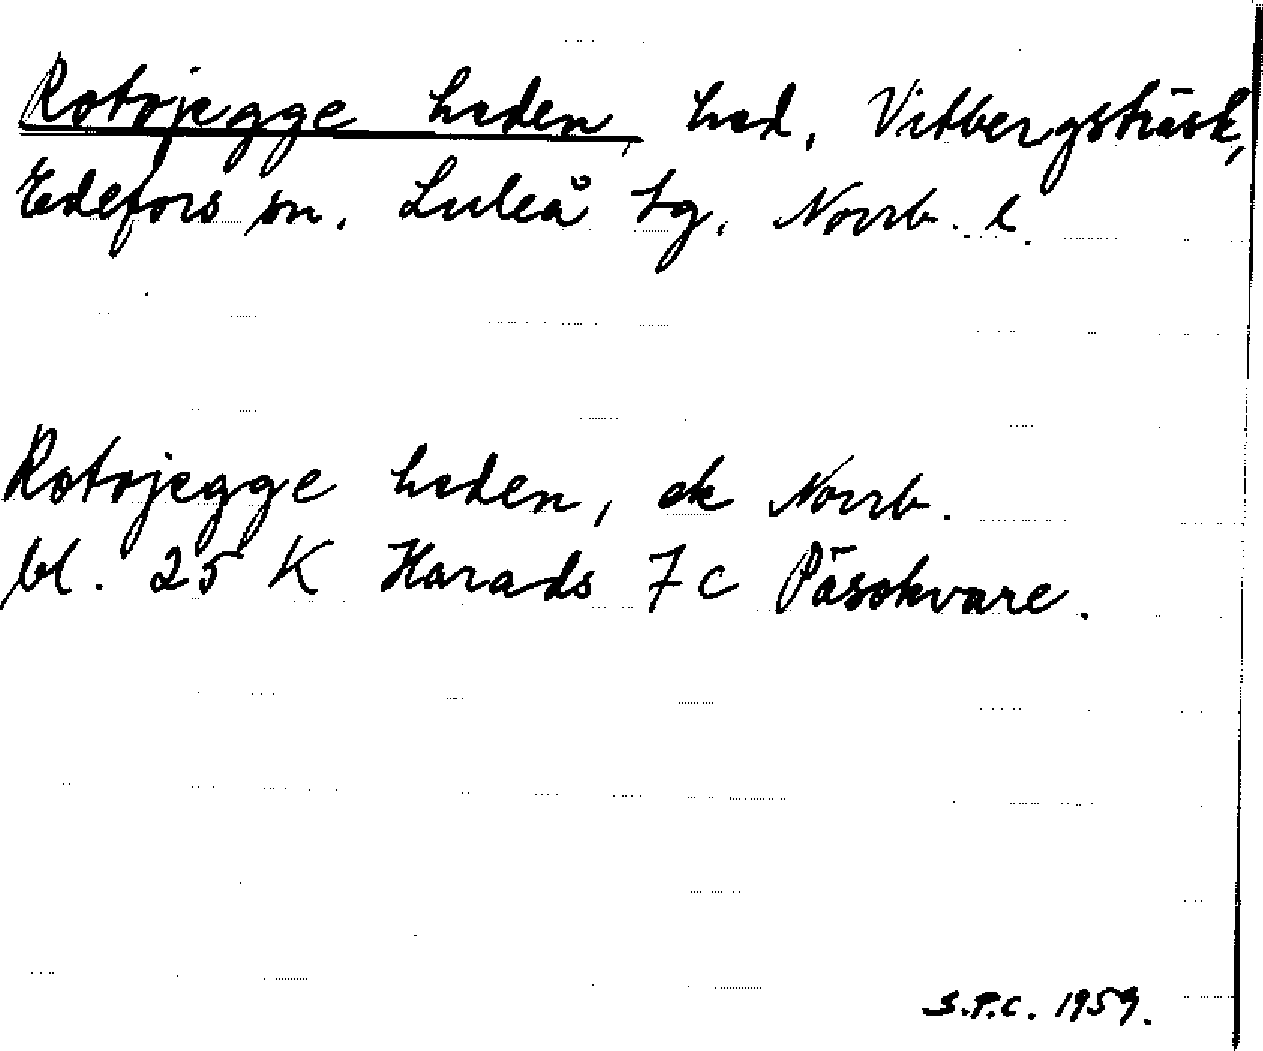 Rotojegge heden, hed, Vitbergsträsk,
Edefors sn, Luleå tg, Norrb. l.
Rotojegge heden, ek Norrb.
bl. 25 K Harads 7 c Päsokvare.
S.P.C. 1959.